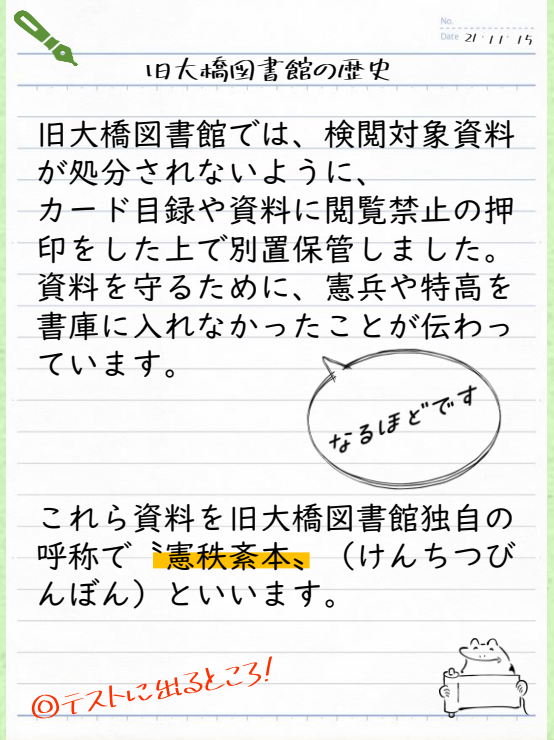 No.
Date 21・11・15
旧大橋図書館の歴史
旧大橋図書館では、検閲対象資料
が処分されないように、
カード目録や資料に閲覧禁止の押
印をした上で別置保管しました。
資料を守るために、憲兵や特高を
書庫に入れなかったことが伝わっ
ています。
なるほどです
これら資料を旧大橋図書館独自の
呼称で〝憲秩紊本〟（けんちつび
んぼん）といいます。
◎テストに出るところ!